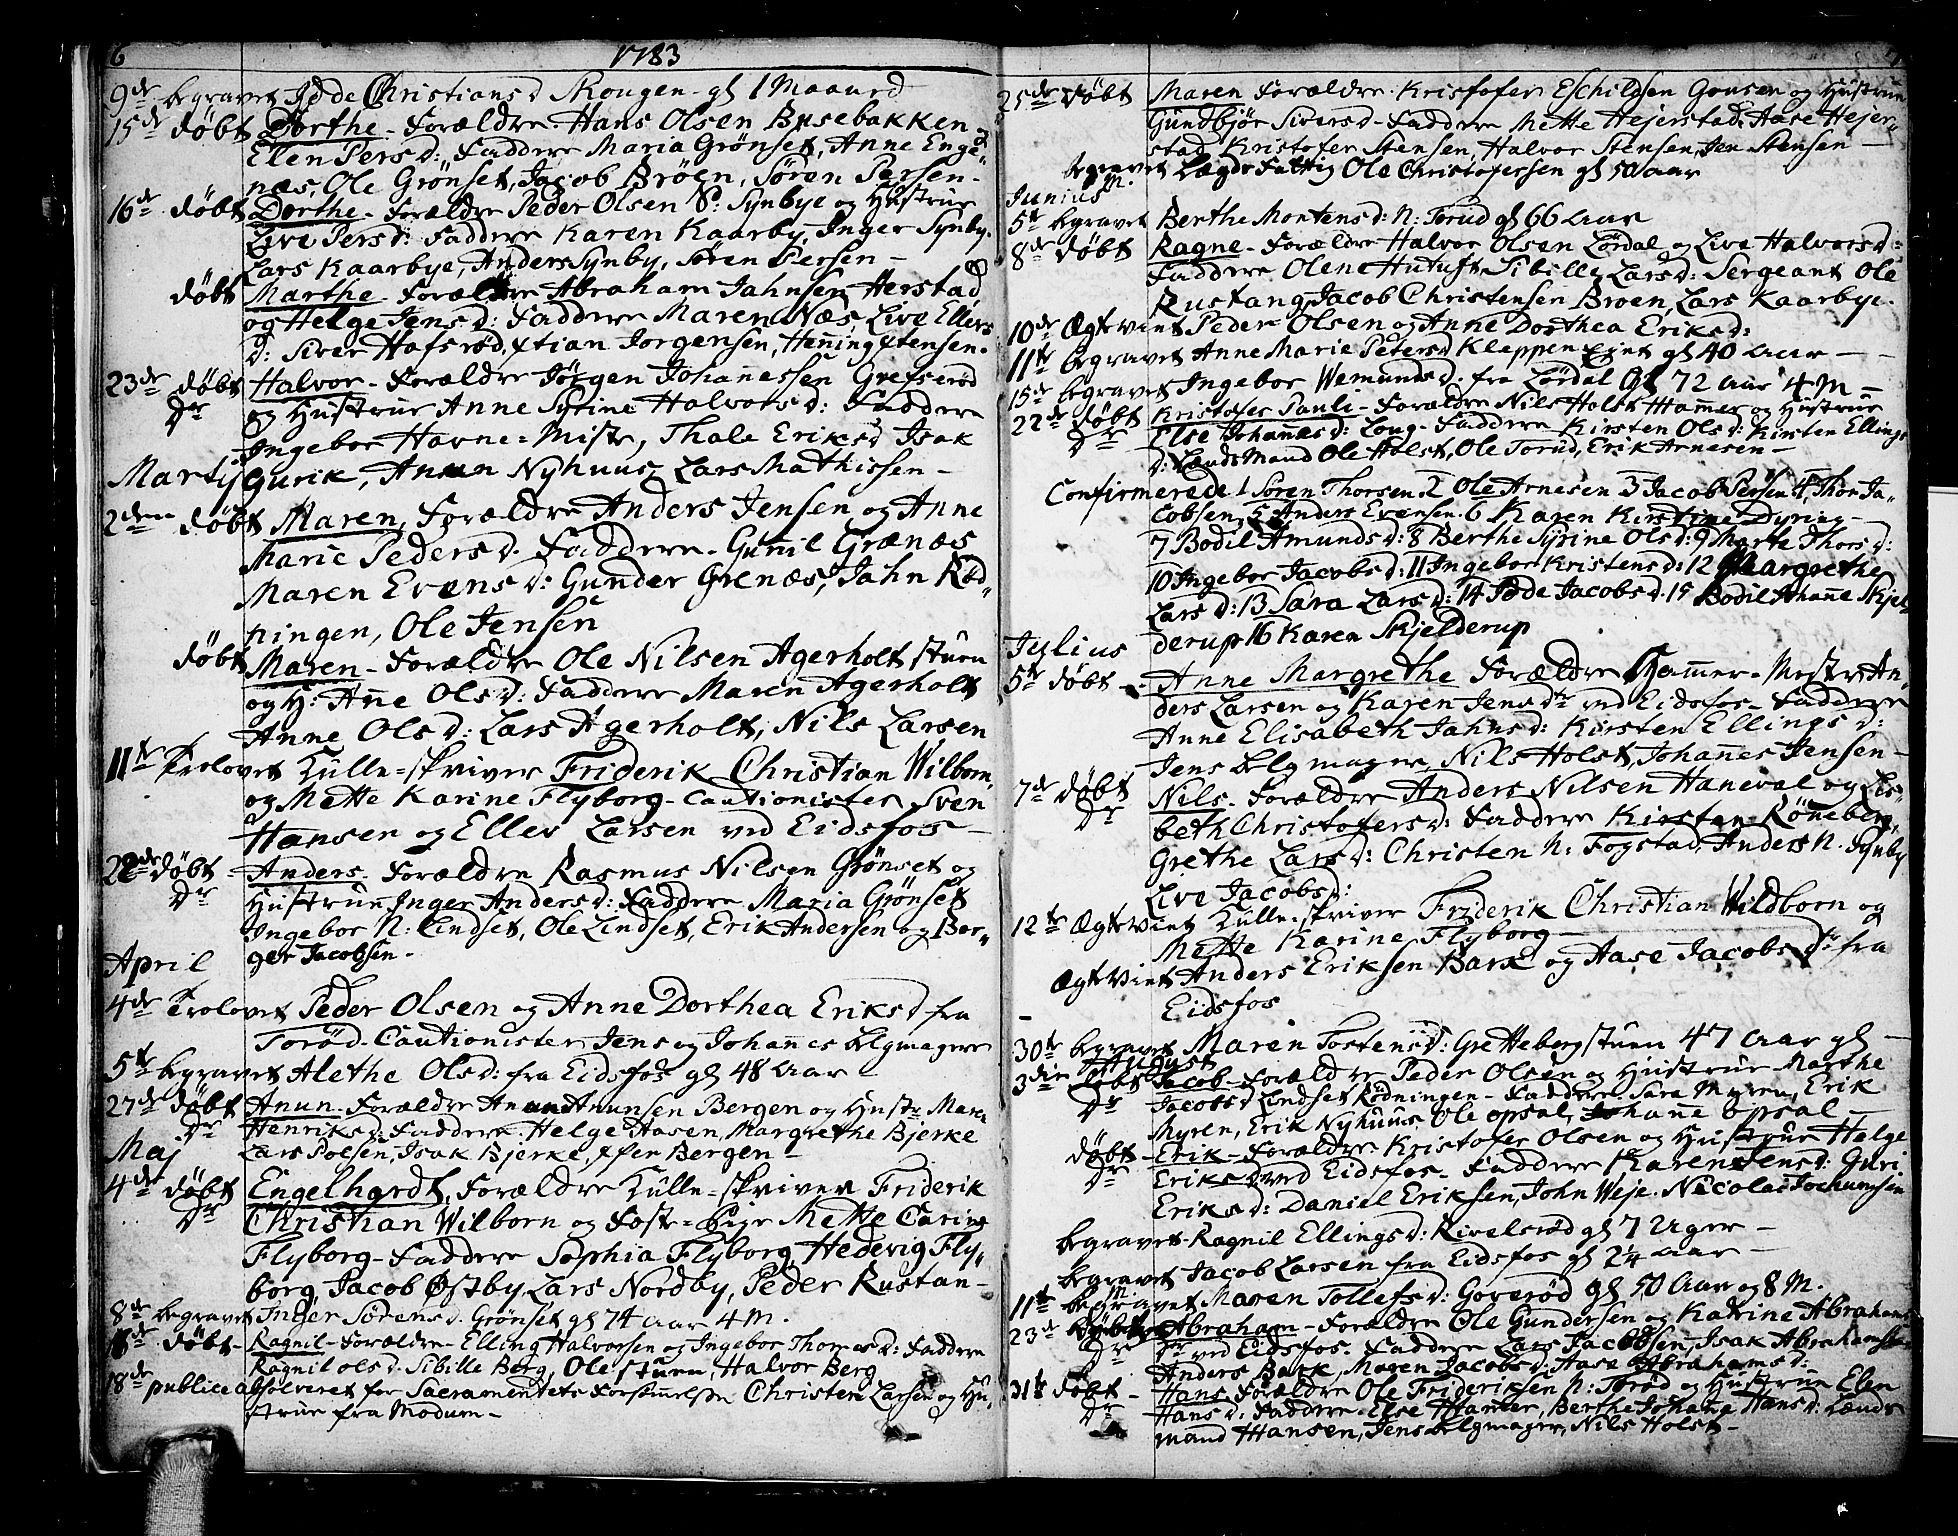 6
1783
9de begravet Idde Christiansd Skougen gl 1 Maaned
15de døbt Dorthe - Forældre Hans Olsen Busebakken
Elen Persd: Faddere Maria Grönset, Anne Enge„
næs, Ole Grönset, Jacob Bröen, Sören Persen.
16de døbt Dorthe - Forældre Peder Olsen N: Synbye og Hustrue
Live Persd: Faddere Karen Kaarby, Inger Synby.
Lars Kaarbye, Anders Synby, Sören Persen -
døbt Marthe Forældre Abraham Jahnsen Herstad
og Helge Jensd: Faddere Maren Næs, Live Ellers
d: Siver Hafsröd, xtian Jorgensen, Henning xtensen.
23de døbt Halvor - Forældre Jörgen Johannessen Grefseröd
Dr og Hustrue Anne Syrine Halvorsd: Faddere
Ingebor Havne=Mist, Thale Eriksd Isak
Martij Gurik, Anun Nyhuus, Lars Mathissen -
2den døbt Maren, Forældre Anders Jensen og Anne
Marie Pedersd. Faddere - Gunil Grænæs
Maren Evensd: Gunder Grenæs, Jahn Röd„
ningen, Ole Jensen
døbt Maren - Forældre Ole Nilsen Agerholt stuen
og H: Anne Olsd: Faddere Maren Agerholt
Anne Olsd: Lars Agerholt, Nils Larsen
11te Trolovet Kulle=skriver Friderik Christian Wilborn
og Mette Karine Flyborg - Cautionister Sven
Hansen og Eller Larsen ved Eidsfos -
22de døbt Anders. Forældre Rasmus Nilsen Grönset og
Dr Hustrue Inger Andersd: Faddere Maria Grönset
Ingebor N: Lindset, Ole Lindset, Erik Andersen og Ber„
April ger Jacobsen -
4de Trolovet Peder Olsen og Anne Dorthea Eriksd fra
Toröd. Cautionister Jens og Johannes Belgmagere
5te begravet Alethe Olsd: fra Eidsfos gl 48 Aar -
27de døbt Anun - Forældre Anun Anunsen Bergen og Hustr: Mari
Dr Henriksd: Faddere. Helge Aasen, Margrethe Bjerke
Maj Lars Polsen, Isak Bjerke, xfer Bergen -
4de døbt Engelhardt, Forældre Kulle=skriver Friderik
Dr Christian Wilborn og Fost=Pige Mette Carine
Flyborg - Faddere Sophia Flyborg, Hedevig Fly„
borg, Jacob Østby, Lars Nordby, Peder Rustan -
8de begravet Inger Sörensd. Grönset gl 74 aar 4 M.
døbt - Ragnil - Forældre - Elling Halvorsen og Ingebor Thoresd: Faddere
Ragnil Olsd. Sibille Berg, Ole stuen, Halvor Berg
18de publice absolveret for Sacramentets Forsömmelse Christen Larsen og Hu„
strue fra Modum -
7
25de døbt Maren Forældre Kristofer Eschildsen Gonsen og Hustrue
Gundbjör Siversd - Faddere Mette Hejerstad, Aase Hejer„
stad, Kristofer Stensen, Halvor Stensen, Jen Stensen -
begravet Lægds Fattig Ole Christofersen gl 50 aar
Junius M.
5te begravet Berthe Mortensd: N: Torud gl 66 Aar
8de døbt Ragne - Forældre Halvor Olsen Lördal og Live Halvorsd=
Faddere Olene Hutuft, Sibille Larsd: Sergeant Ole
Rustang, Jacob Christensen Broen, Lars Kaarbye.
10de Ægteviet Peder Olsen og Anne Dorthea Eriksd:
11te begravet Anne Marie Petersd Kleppen Ejet gl 40 Aar - -
15de begravet Ingebor Wemundsd. fra Lördal gl 72 Aar 4 M -
22de døbt Kristofer Pauli - Forældre Nils Holst Hammer og Hustrue
Dr Else Johannesd: Loug - Faddere Kirsten Olsd: Kirsten Ellings
d: Lænds Mand Ole Holst, Ole Torud, Erik Arnesen -
Confirmerede 1 Sören Thorsen. 2 Ole Arnesen 3 Jacob Persen 4 Thor Ja„
cobsen, 5 Anders Evensen. 6 Karen Kirstine Dyring -
7 Bodil Amundsd: 8 Berthe Syrine Olsd: 9 Marte Thorsd:
10 Ingebor Jacobsd: 11 Ingebor Kristensd: 12 Margrethe
Larsd: 13 Sara Larsd: 14 Idde Jacobsd. 15 Bodil Johanne Skjel„
Julius derup 16 Karen Skjelderup
5te døbt - Anne Margrethe Forældre Hammer-Mester An„
ders Larsen og Karen Jensdtr ved Eidsfos - Faddere
Anne Elisabeth Jahnsd: Kirsten Ellingsd:
Jens Belgmager, Nils Holst, Johannes Jensen -
7de døbt Nils - Forældre Anders Nilsen Haneval og Lis„
Dr beth Christofersd: Faddere Kirsten Röneberg,
Grethe Larsd: Christen N: Fogstad, Anders N. Synby
Live Jacobsd:
12te Ægteviet Kulle=skriver Friderik Christian Wildborn og
Mette Karine Flyborg -
Ægteviet Anders Eriksen Bark og Aase Jacobsdr fra
Eidsfos
30te begravet Maren Tostensd: Gretteberg stuen 47 Aar gl -
August
3die døbt Jacob - Forældre Peder Olsen og Hustrue Marthe
Dr Jacobsd Lindset Rödningen - Faddere Sara Myren, Erik
Myren, Erik Nyhuus, Ole Opsal, Johanne Opsal -
døbt - Erik - Forældre Kristofer Olsen og Hustrue Helge
Dr Eriksd ved Eidsfos - Faddere Karen Jensd: Guri
Eriksd: Daniel Eriksen, John Weje. Nicolai Jochumsen
begravet - Ragnil Ellingsd: Rivelsröd gl 7 Uger -
begravet Jacob Larsen fra Eidsfos gl 2¼ Aar -
11te begravet Maren Tollefsd: Goveröd gl 50 Aar og 8 M.
23de døbt Abraham - Forældre Ole Gundersen og Katrine Abrahams
Dr dr ved Eidsfos. Faddere Lars Jacobsen, Isak Abrahamsen
Anders Bark, Maren Jacobsd: Aase Abrahamsd:
31te døbt - Hans Forældre Ole Frideriksen N: Toröd og Hustrue Elen
Dr Hansd: Faddere. Else Hammer, Berthe Johanne Hansd: Lænds
mand Hansen, Jens Belgmager, Nils Holst -